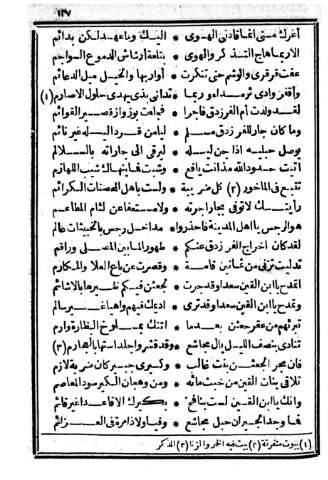 ١٢٧
أغرك منى انما قادنى الهوى * اليك وما عهد لكن بدائم
الا ربما هاج التذكر والهوى * بتلعة ارشاش الدموع السواجم
عفت قرقرى والوشم حتى تنكرت * أواريها والخيل ميل الدعائم
وأقفر وادى ثرمداء وربما * تدانى بذى بهدى حلول الاصارم (١)
لقد ولدت أم الفرزدق فاجرا * فجاءت بوزواز قصير القوائم
وما كان جار للفرزدق مسلم * ليأمن قردا ليله غير نائم
يوصل حبليه اذا جن ليله * ليرقى الى جاراته بالسلالم
أتيت حدود الله مذ أنت يافع * وشبت فما ينهاك شيب اللهازم
تتبع فى الماخور (٢) كل مريبة * ولست بأهل المحصنات الكرائم
رأيتك لا توفى بجار اجرته * ولا مستعفا عن لئام المطاعم
هو الرجس يا أهل المدينة فاحذروا * مداخل رجس بالخبيثات عالم
لقد كان اخراج الفرزدق عنكم * طهورا لما بين المصلى وواقم
تدليت تزنى من ثمانين قامة * وقصرت عن باع العلا والمكارم
أتمدح يا ابن القين سعدا وقد جرت * لجعثن فيكم طيرها بالاشائم
وتمدح يا ابن القين سعدا وقد ترى * اديمك فيهم واهيا غير سالم
تبرئهم من عقر جعثن بعدما * اتتك بمسلوخ البظارة وارم
تنادى بنصف الليل يال مجاشع * وقد قشروا جلد استها بالعجارم (٣)
فان مجر الجعثن بنت غالب * وكيرى جبير كان ضربة لازم
تلاقى بنات القين من خبث مائه * ومن وهجان الكير سود المعاصم
وانك يا ابن القين لست بنافخ * بكيرك الا قاعدا غير قائم
فما وجد الجيران حبل مجاشع * وفيا ولا ذا مرة فى العزائم
(١) بيوت متفرقة (٢) بيت فيه الخمر والزنا (٣) الذكر